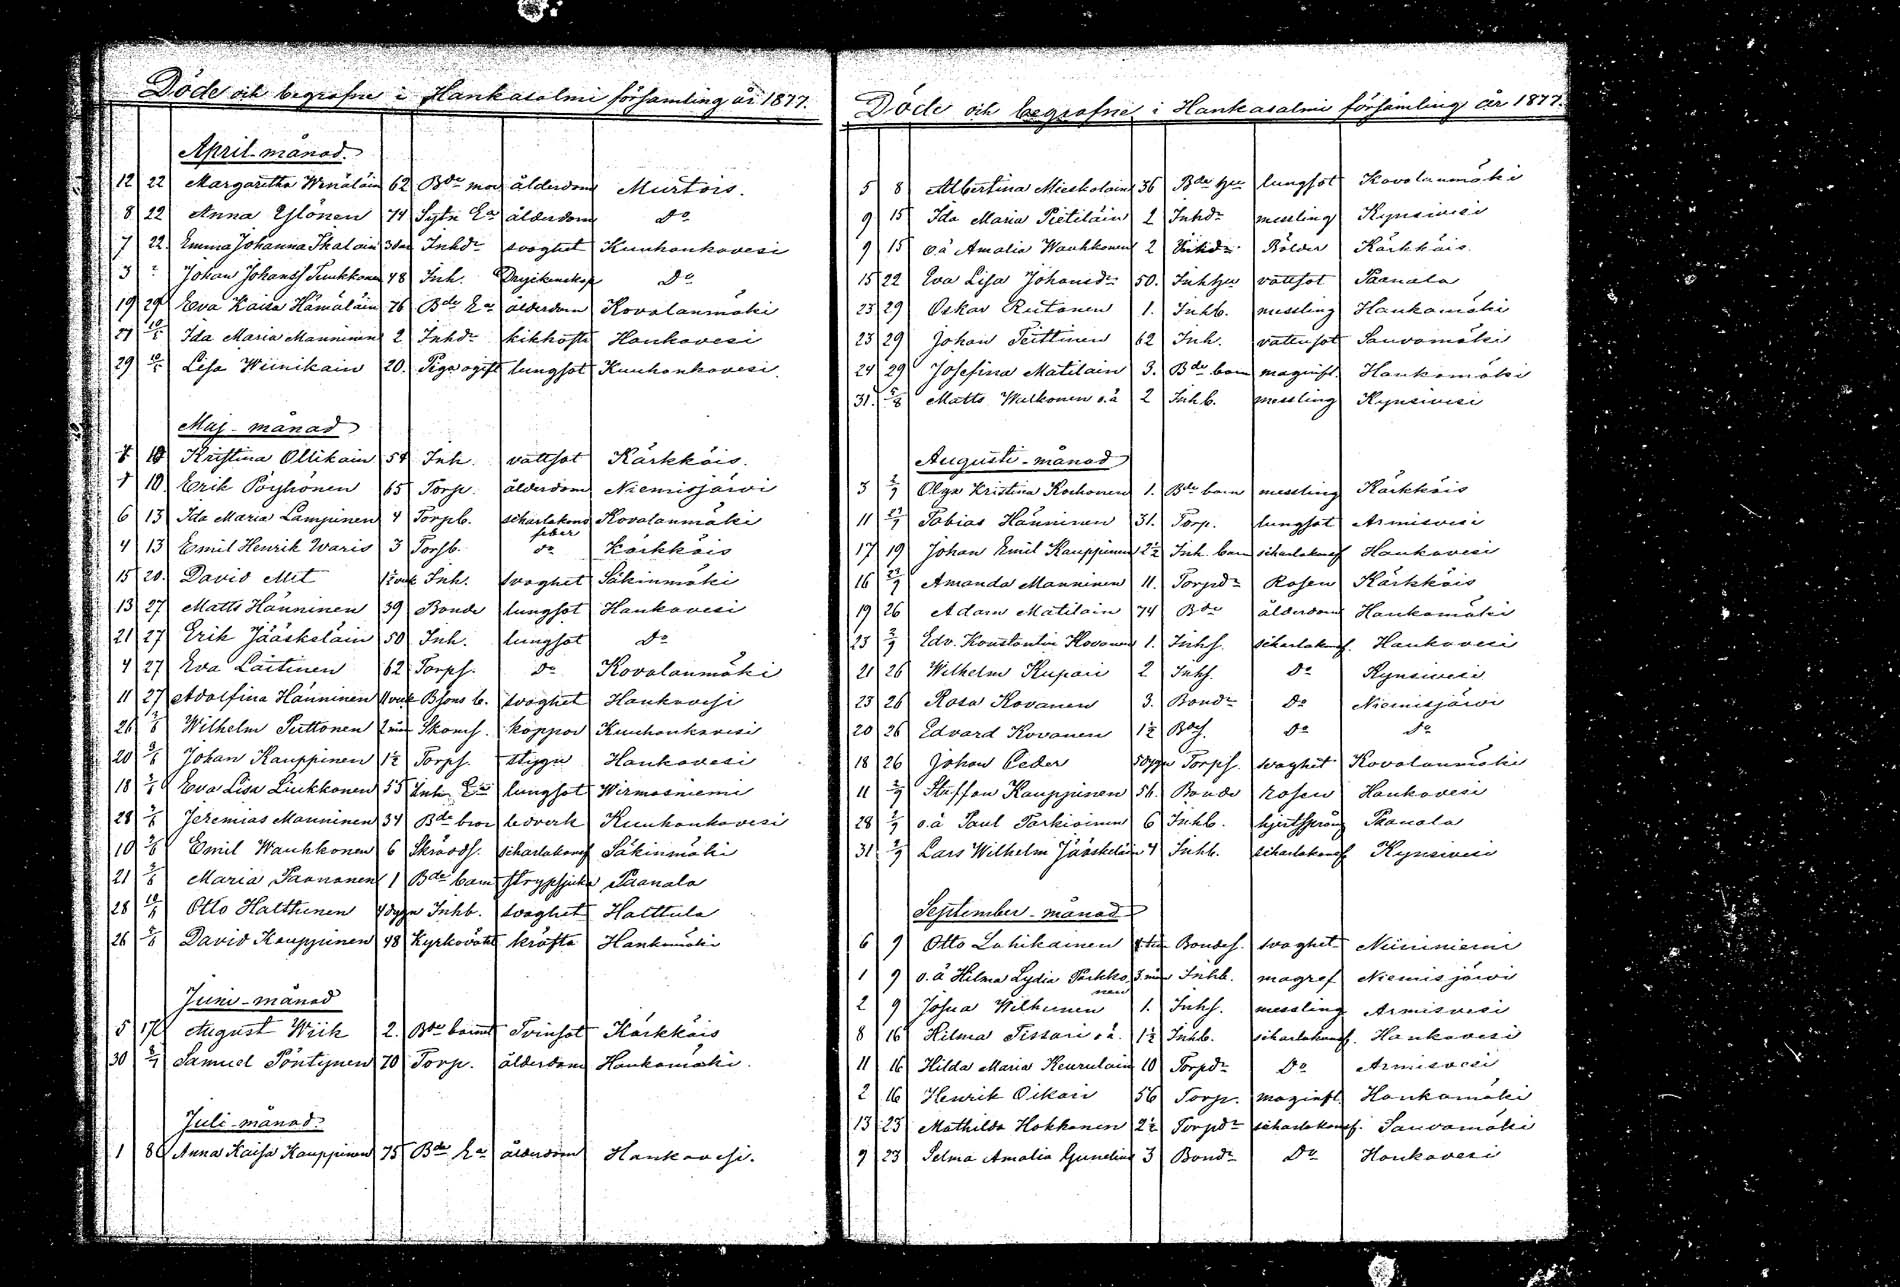 Döde och begrafne i Hankasalmi församling år 1877.
April-månad.
12 22 Margaretha 62 Bde mor ålderdom Murtois.
8 22 Anna Ylönen 74 Sytn Ea ålderdom Do
7 22. Emma Johanna Ikalain Inhdr svaghet Kuuhankavesi
3 " Johan Johanss Tuukkanen 48 Inh. Dryckenskap Do
19 29 Eva Kaisa Hämäläin 76 Bde Ea ålderdom Kovalanmäki
27 10/5 Ida Maria Manninen 2 Inhdr kikhosta Hankavesi
29 10/5 Lisa Wiinikain 20. Piga ogift lungsot Kuuhankavesi.
Maj-månad
7 10 Kristina Ollikain 54 Inh. vattsot Kärkkäis.
7 10. Erik Pöyhönen 65 Torp. ålderdom Niemisjärvi
6 13 Ida Maria Lampinen 4 Torpb. scharlakans feber Kovalanmäki
4 13 Emil Henrik Waris 3 Torpb. do Kärkkäis
15 20. David Met Inh. svaghet Säkinmäki
13 27 Matts Hänninen 39 Bonde lungsot Hankavesi
21 27 Erik Jääskeläin 50 Inh. lungsot Do
4 27 Eva Laitinen 62 Torps. Do Kovalanmäki
11 27 Adolfina Hänninen 11 veck Bsons b. svaghet Hankavesi
26 3/6 Wilhelm Puttonen 2 mån Skoms. koppor Kuuhankavesi
20 3/6 Johan Kauppinen 1½ Torps. stygn Hankavesi
18 3/6 Eva Lisa Liukkonen 55 Inh Ea lungsot Wirmasniemi
28 3/6 Jeremias Manninen 34 Bde bror ledverk Kuuhankavesi
10 3/6 Emil Wauhkonen 6 Skrädds. scharlakansf Säkinmäki
21 3/6 Maria Paananen 1 Bde barn strypsjuka Paanala
28 10/6 Otto Halttunen 4 dygn Inhb. svaghet Halttula
26 3/6 David Kauppinen 48 Kyrkovakt kräfta Hankamäki
Juni-månad
5 17 August Wiik 2. Bde barn Tvinsot Kärkkäis
30 8/7 Samuel Pöntynen 70 Torp. ålderdom Hankamäki.
Juli-månad
1 8 Anna Kaisa Kauppinen 75 Bde Ea ålderdom Hankavesi.
Döde och begrafne i Hankasalmi församling år 1877.
5 8 Albertina Mieskolain 36 Bde hu lungsot Kovalanmäki
9 15 Ida Maria Pietiläin 2 Inhdr messling Kynsivesi
9 15 o.ä Amalia Wauhkonen 2 Inhdr Bölder Kärkkäis.
15 22 Eva Lisa Johansdr 50. Inh hu vattsot Paanala
23 29 Oskar Rutanen 1. Inhb. messling Hankamäki
23 29 Johan Peittinen 62 Inh. vattusot Sauvamäki
24 29 Josefina Matilain 3. Bde barn maginfl. Hankamäki
31. 5/8 Matts Walkonen o.ä 2 Inhb. messling Kynsivesi
Augusti-månad
3 2/9 Olga Kristina Korhonen 1. Bde barn messling Kärkkäis
11 Tobias Hänninen 31. Torp. lungsot Armisvesi
17 19 Johan Emil Kauppinen 2½ Inh. barn scharlakansf Hankavesi
16 Amanda Manninen 11. Torpdr Rosen Kärkkäis
19 26 Adam Matilain 74 Bde ålderdom Hankamäki
23 2/9 Edv. Konstantin Kovanen 1. Inhs. scharlakansf. Hankavesi
21 26 Wilhelm Kupari 2 Inhs. Do Kynsivesi
23 26 Rosa Kovanen 3. Bondr Do Niemisjärvi
20 26 Edvard Kovanen 1½ Bds. Do Do
18 26 Johan Peder 5 dygn Torps. svaghet Kovalanmäki
11 2/9 Staffan Kauppinen 56. Bonde rosen Hankavesi
28 2/9 o.ä Paul Parkioinen 6 Inhb. hjertsprång Paanala
31 2/9 Lars Wilhelm Jääskeläin 4 Inhb. scharlakansf Kynsivesi
September-månad
6 9 Otto Lahikainen Bondes. svaghet Niininiemi
1 9 o.ä Hilma Lydia Parkkonen 3 mån Inhb. magref Niemisjärvi
2 9 Josua Wilhunen 1. Inhs. messling Armisvesi
8 16 Hilma Tissari o.ä. 1½ Inhb. scharlakansf. Hankavesi
11 16 Hilda Maria Keurulain 10 Torpdr Do Armisvesi
2 16 Henrik Oikari 56 Torp. maginfl. Hankamäki
13 23 Mathilda Hokkanen 2½ Torpdr scharlakansf. Sauvamäki
9 23 Selma Amalia Gunelius 3 Bondr Do Hankavesi